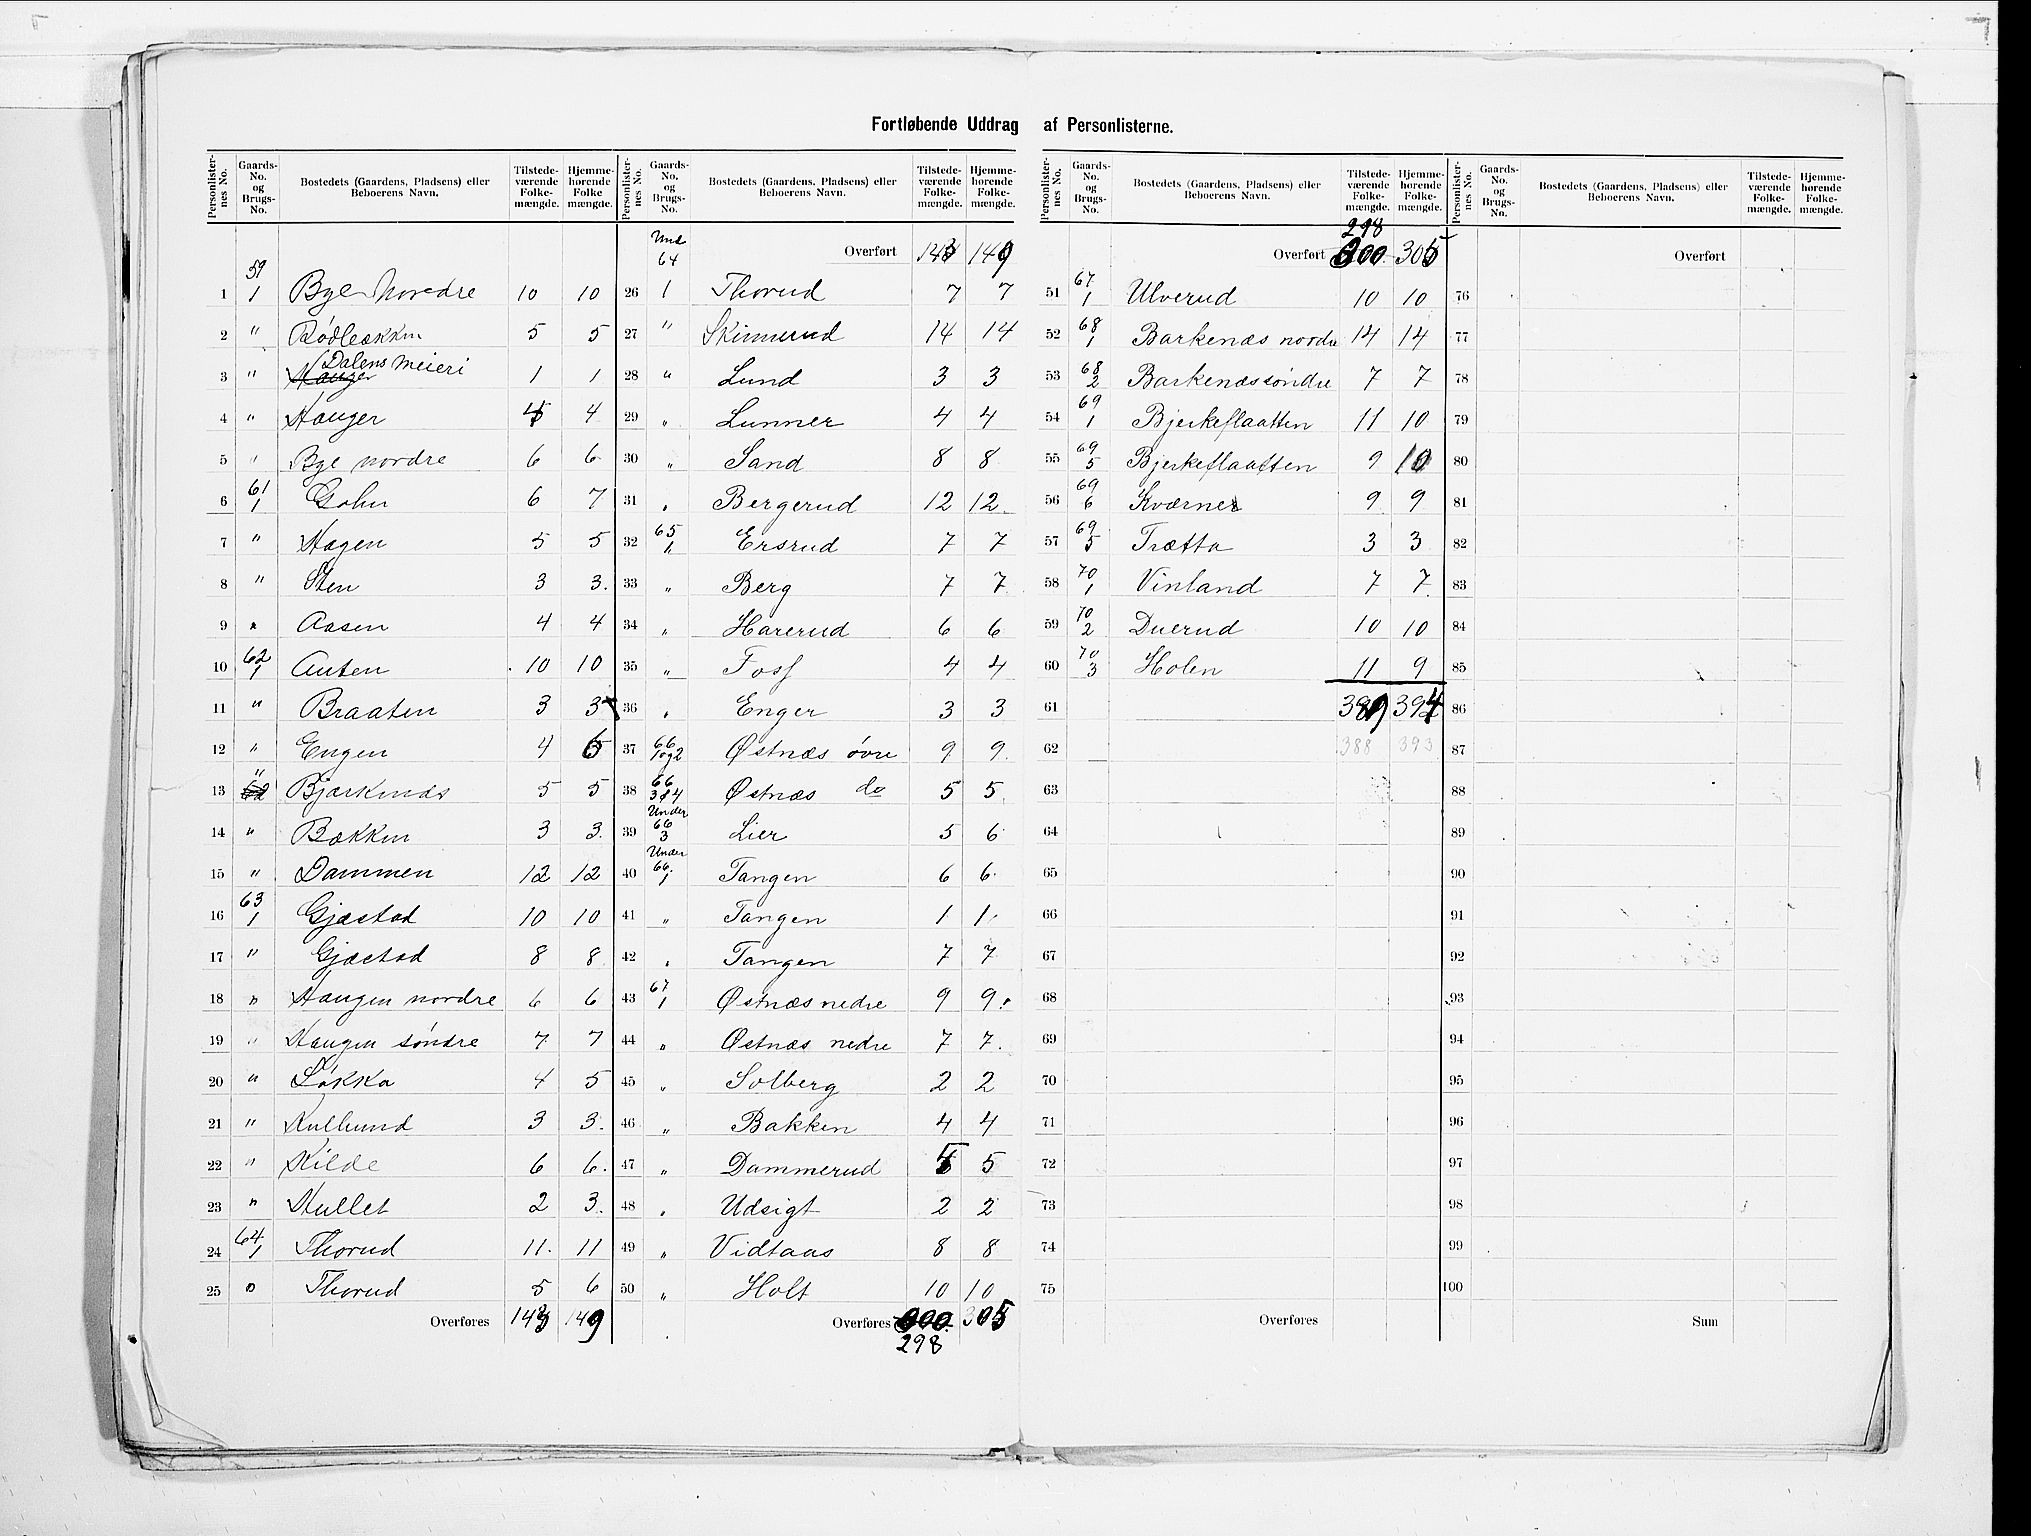 Fortløbende Uddrag af Personlisterne.
Personlister-nes No. Gaards-No. og Brugs-No. Bostedets (Gaardens, Pladsens) eller Beboerens Navn. Tilstede-værende Folke-mængde. Hjemme-hørende Folke mængde.
59
1 1 Bye Nordre 10 10
2 " Rødbekken 5 5
3 " Hauger Dalens Meieri 1 1
4 " Hauger 4 4
5 " Bye nordre 6 6
6 61/1 Gohn 6 7
7 " Hagen 5 5
8 " Sten 3 3.
9 " Aasen 4 4
10 62/1 Auten 10 10
11 " Braaten 3 3
12 " Engen 4 5
13 " Bjørknæs 5 5
14 " Bækken 3 3.
15 " Dammen 12 12
16 63/1 Gjæstad 10 10
17 " Gjæstad 8 8
18 " Haugen nordre 6 6
19 " Haugen søndre 7 7
20 " Løkka 4 5
21 " Hullund 3 3.
22 " Kilde 6 6.
23 " Hullet 2 3.
24 64/1 Thorud 11. 11
25 " Thorud 5 6
Overføres 143 149
Personlister-nes No. Gaards-No. og Brugs-No. Bostedets (Gaardens, Pladsens) eller Beboerens Navn. Tilstede-værende Folke-mængde. Hjemme-hørende Folke-mængde.
Und 64 Overført 143 149
26 1 Thorud 7 7
27 " Skinnerud 14 14
28 " Lund 3 3
29 " Lunner 4 4
30 " Sand 8 8
31 " Bergerud 12 12
32 65/1 Ersrud 7 7
33 " Berg 7 7
34 " Harerud 6 6
35 " Foss 4 4
36 " Enger 3 3
37 66/1og2 Østnæs øvre 9 9
38 66/3&4 Østnæs do 5 5
39 Under 66/3 Lier 5 6
40 Under 66/1 Tangen 6 6
41 " Tangen 1 1
42 " Tangen 7 7
43 67/1 Østnæs nedre 9 9
44 " Østnæs nedre 7 7.
45 " Solberg 2 2
46 " Bakken 4 4
47 " Dammerud 5 5
48 " Udsigt 2 2
49 " Vidtaas 8 8
50 " Holt 10 10
Overføres 300 305
298
Personlister-nes No. Gaards-No. og Brugs-No. Bostedets (Gaardens, Pladsens) eller Beboerens Navn. Tilstede-værende Folke-mængde. Hjemme-hørende Folke-mængde.
298
Overført 300 305
51 67/1 Ulverud 10 10
52 68/1 Barkenæs nordre 14 14
53 68/2 Barkenæs søndre 7 7
54 69/1 Bjerkeflaatten 11 10
55 69/5 Bjerkeflaatten 9 10
56 69/6 Kværner 9 9
57 69/5 Trætta 3 3
58 70/1 Vinland 7 7
59 70/2 Duerud 10 10
60 70/3 Holen 11 9
61 389 394
62 388 393
63
64
65
66
67
68
69
70
71
72
73
74
75
Overføres
Personlister-nes No. Gaards-No. og Brugs-No. Bostedets (Gaardens, Pladsens) eller Beboerens Navn. Tilstede-værende Folke-mængde. Hjemme-hørende Folke-mængde.
Overført
76
77
78
79
80
81
82
83
84
85
86
87
88
89
90
91
92
93
94
95
96
97
98
99
100
Sum